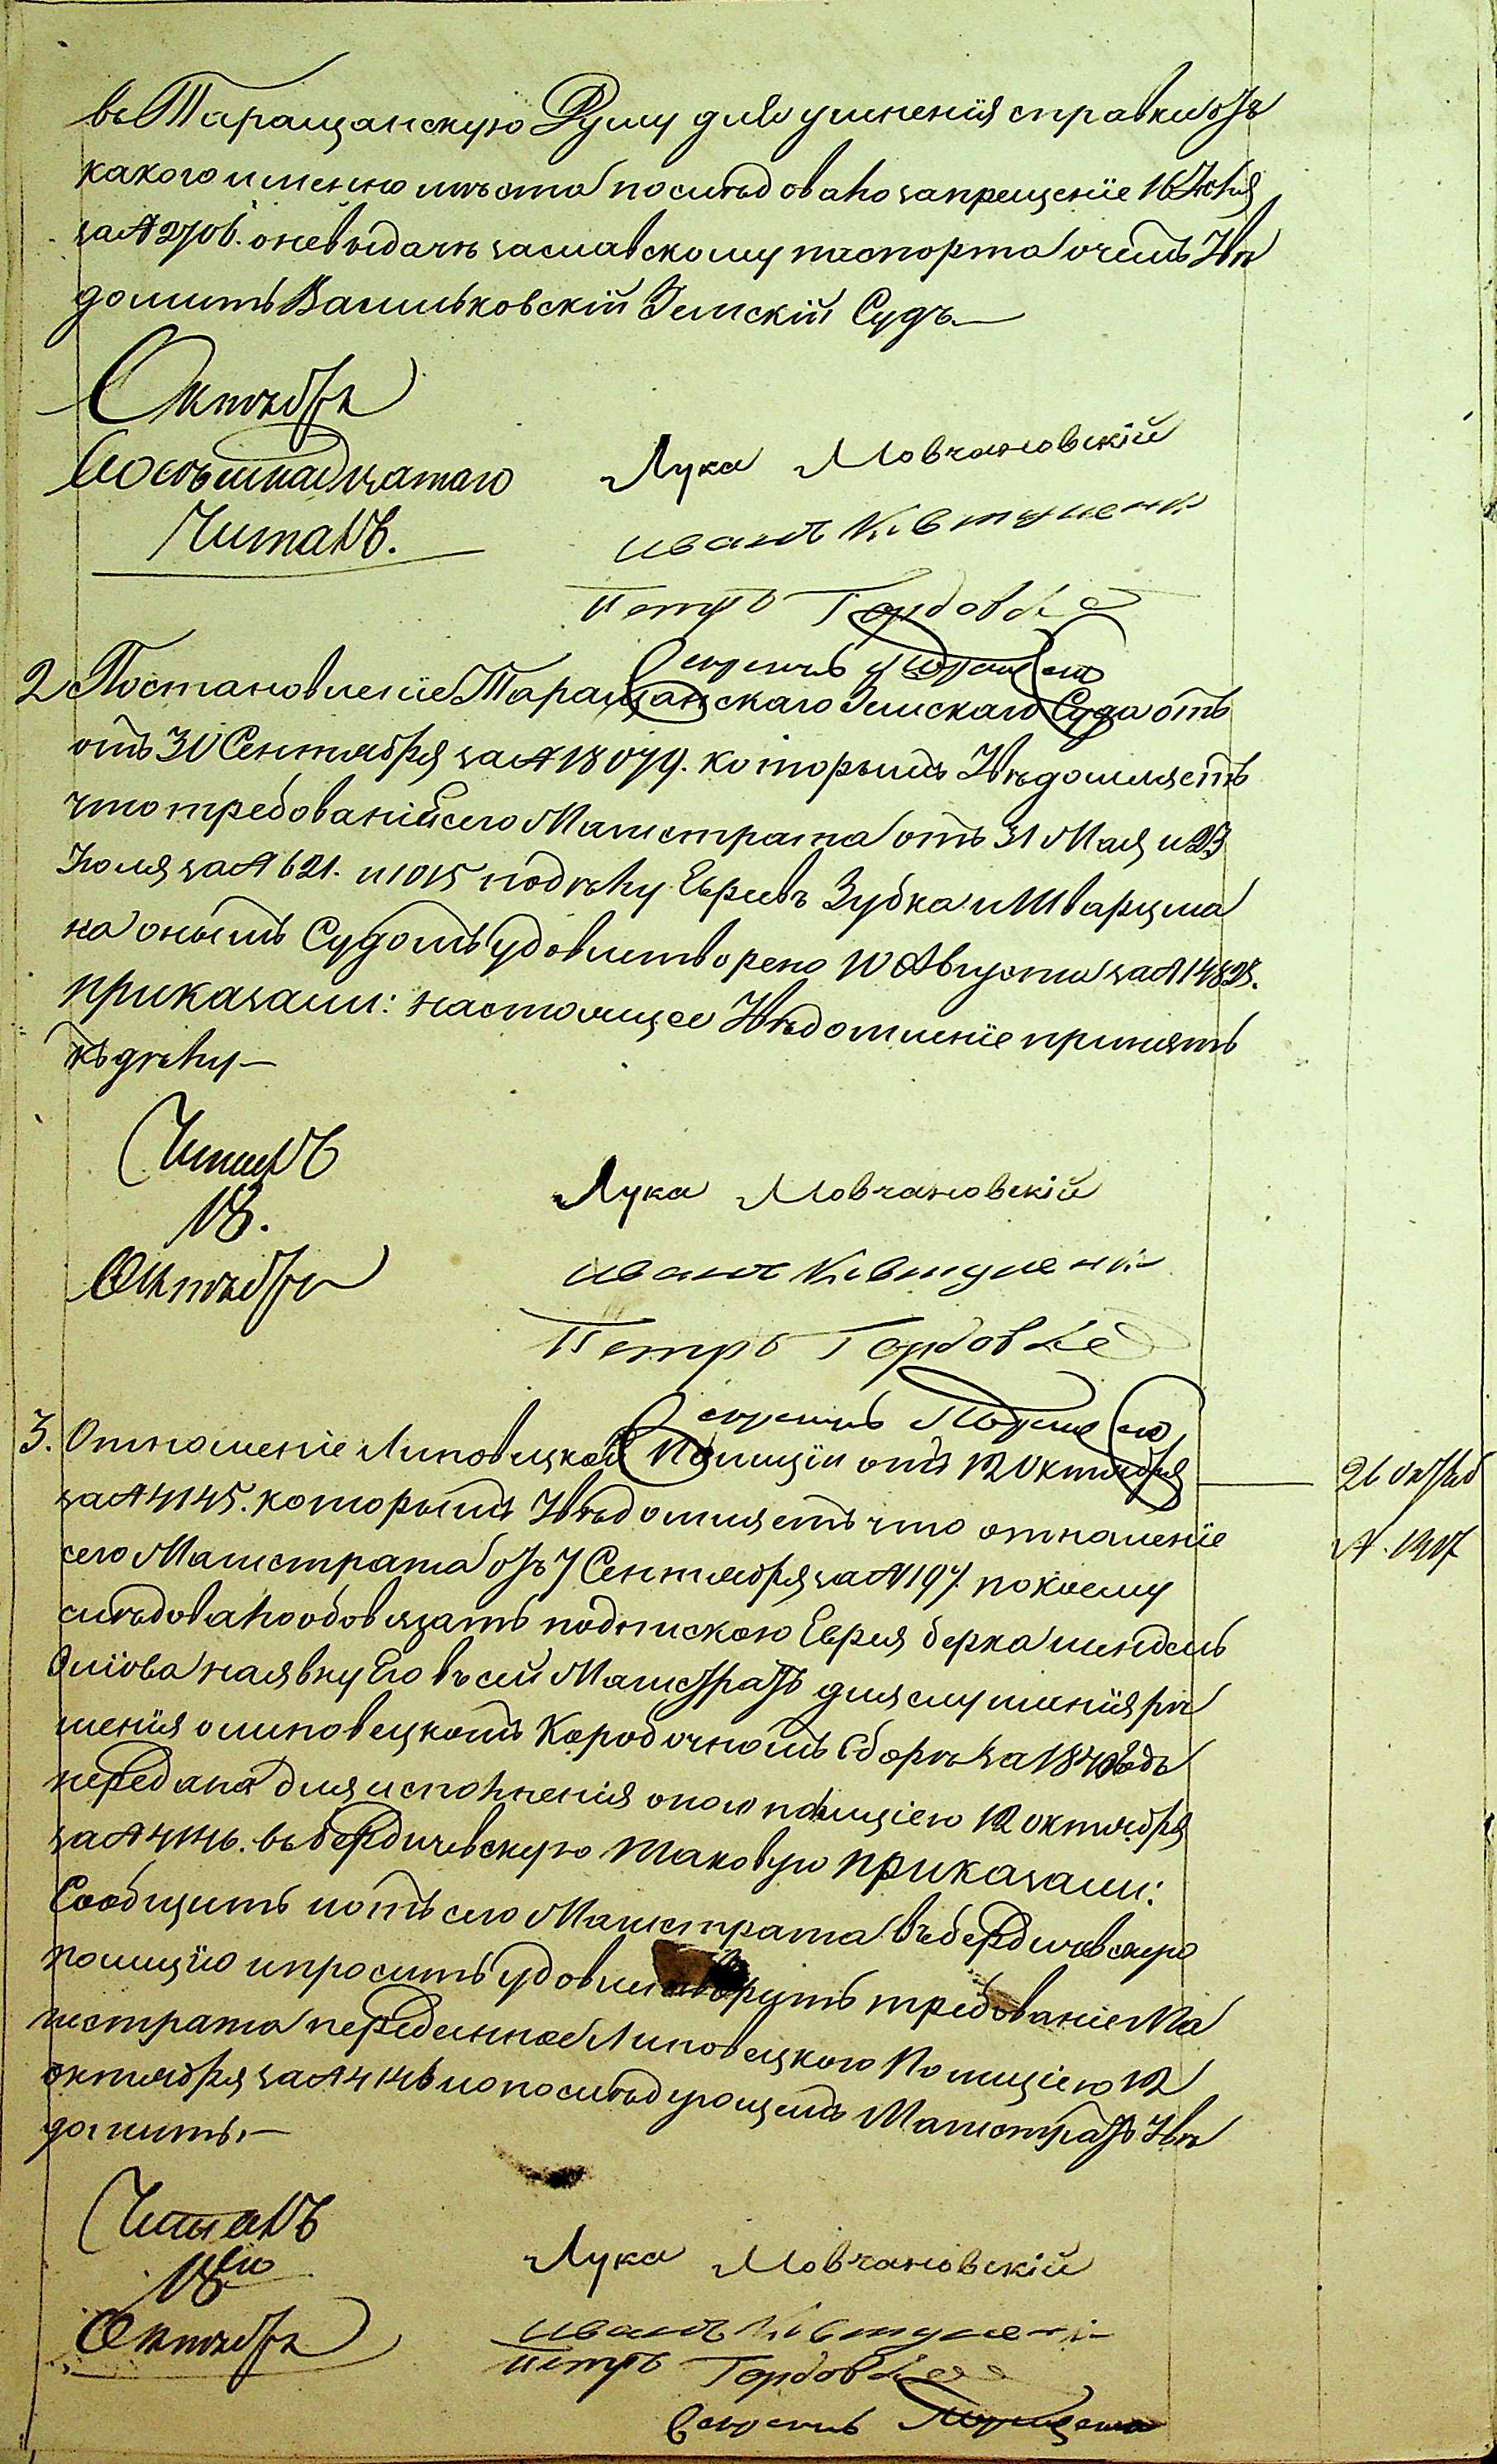 въ Таращанскую Думу для учиненія справки отъ
какого именно мѣста последовало запрещеніе 16 Июня
за № 2706. о невыдачѣ Заславскому паспорта о чемъ Увѣ
домить Васильковскій Земскій Судъ
Октября
Восьмнадцатаго
Читалъ.
Лука Мовчановскій
Иванъ
Петръ
Секретарь
2 Постановленіе Таращанскаго Земскаго Суда отъ
отъ 30 Сентября за № 18079. которымъ Увѣдомляетъ
что требованій сего Магистрата отъ 31 Мая и 23
Июля за № 621. и 1015 по дѣлу Евреевъ Зубка и Шварцма
на онымъ Судомъ удовлетворено 10 Августа за № 14828.
приказали: настоящее Увѣдомленіе принять
къ дѣлу
Читалъ
18.
Октября
Лука Мовчановскій
Иванъ
Петръ
Секретарь
3. Отношеніе Липовецкой Полиціи отъ 12 Октября
за № 4145. которымъ Увѣдомляетъ что отношеніе
сего Магистрата отъ 7 Сентября за № 1197 по коему
слѣдовало обовязать подпискою Еврея Берка
на явку Его въ сей Магистратъ для слушанія рѣ
шенія о Липовецкомъ Коробочномъ Сборѣ за 1840 годъ
передана для исполненія оною полиціею 12 октября
за № 4146. въ Бердичевскую таковую приказали:
Сообщить изъ сего Магистрата въ Бердичевскую
полицію и просить удовлетворить требованіе Ма
гистрата переданное Липовецкою Полиціею 12
октября за № 4146 и о последующемъ Магистратъ Увѣ
домить.
26 Октяб
№ 1917
Читалъ
18го
Октября
Лука Мовчановскій
Иванъ
Петръ
Секретарь